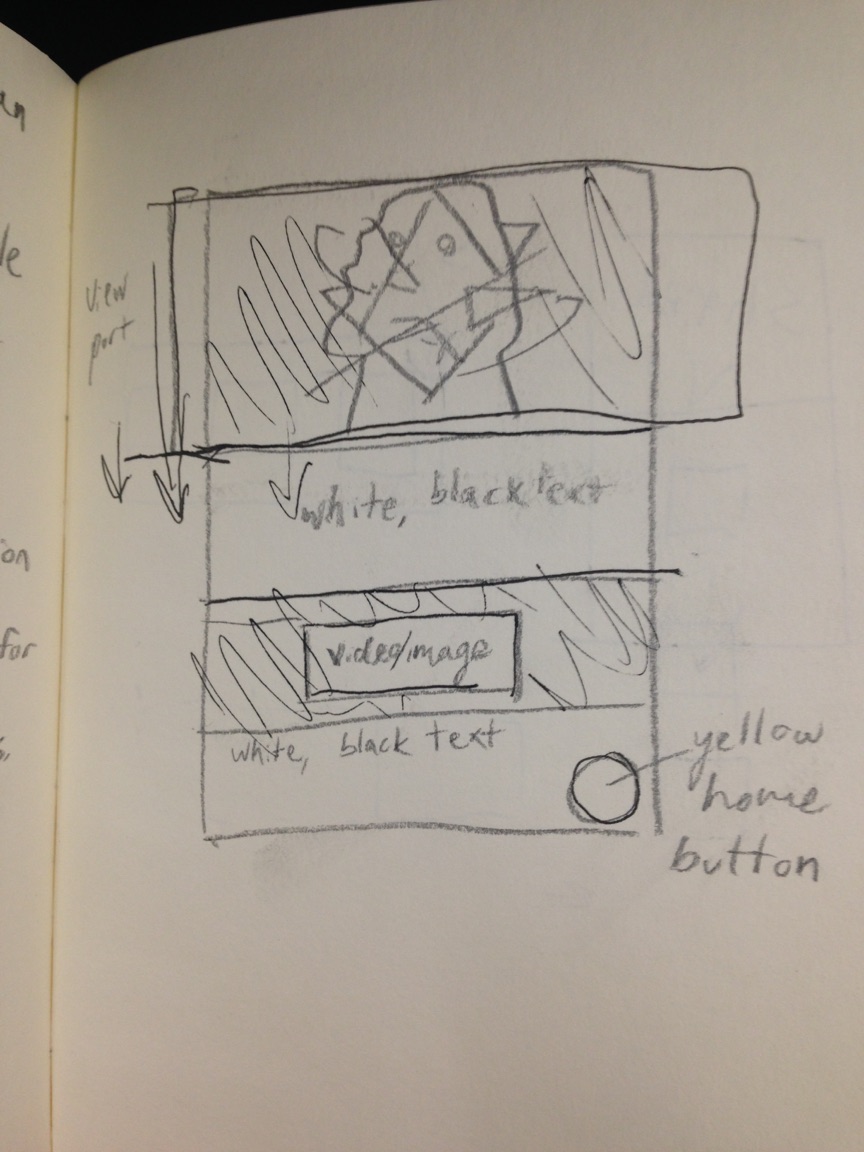 le
view
port
white, black text
on
video/image
for
white, black text
yellow
home
button